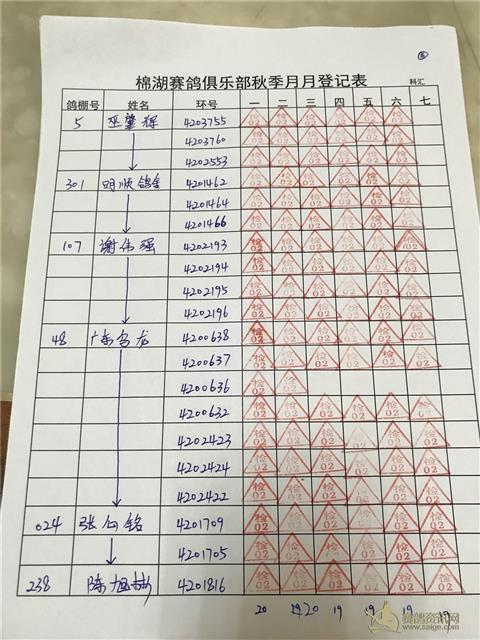 棉湖赛鸽俱乐部秋季月月登记表 科汇
鸽棚号 姓名 环号 一 二 三 四 五 六 七
5 巫肇辉 4203755 检02 检02 检02 检02 检02 检02 检02
4203760 检02 检02 检02 检02 检02 检02 检02
4202553 检02 检02 检02 检02 检02 检02 检02
301 明顺鸽舍 4201462 检02 检02 检02 检02 检02 检02 检02
4201464 检02 检02 检02 检02 检02 检02 检02
4201466 检02 检02 检02 检02 检02 检02 检02
107 谢伟强 4202193 检02 检02 检02 检02 检02 检02 检02
4202194 检02 检02 检02 检02 检02 检02 检02
4202195 检02 检02 检02 检02 检02 检02 检02
4202196 检02 检02 检02 检02 检02 检02 检02
48 广东乌龙 4200638 检02 检02 检02 检02 检02 检02 检02
4200637 检02 检02 检02 检02 检02 检02 检02
4200636 检02 检02
4200632 检02 检02 检02 检02 检02 检02 检02
4202423 检02 检02 检02 检02 检02 检02 检02
4202424 检02 检02 检02 检02 检02 检02 检02
4202422 检02 检02 检02 检02 检02 检02 检02
024 张 铭 4201709 检02 检02 检02 检02 检02 检02 检02
4201705 检02 检02 检02 检02 检02 检02 检02
238 陈旭彬 4201816 检02 检02 检02 检02 检02 检02 检02
20 20 19 19 19 19
赛鸽资讯网
www.saige.com